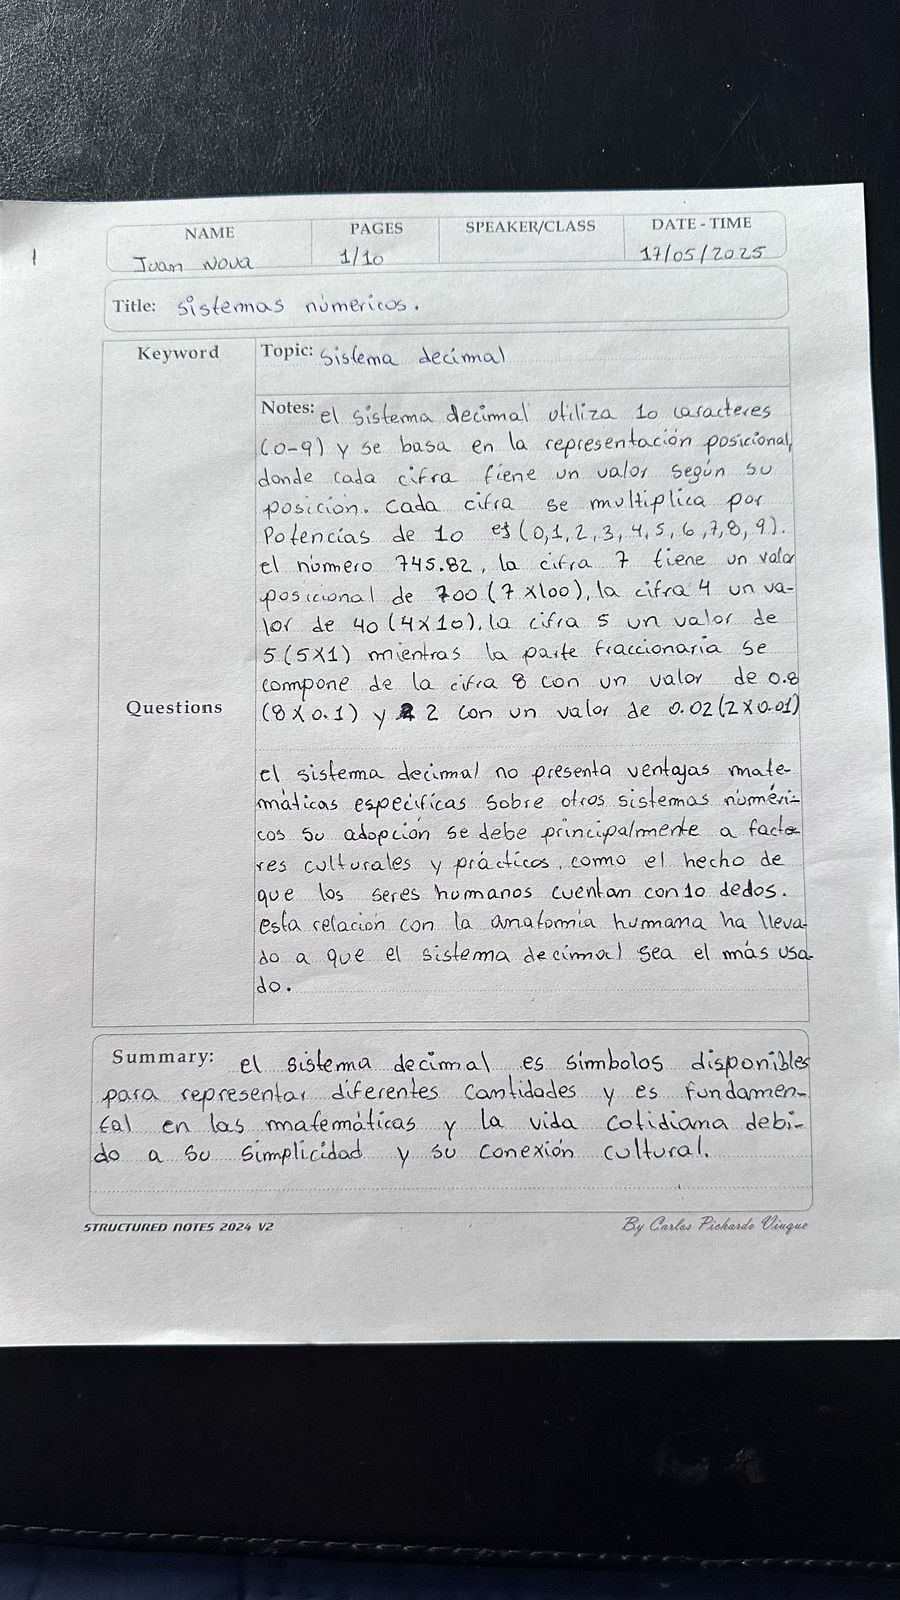 NAME PAGES SPEAKER/CLASS DATE - TIME
1 Juan Nova 1/10 17/05/2025
Title: sistemas númericos.
Keyword Topic: sistema decimal
Notes: el sistema decimal utiliza 10 caracteres
(0-9) y se basa en la representación posicional,
donde cada cifra tiene un valor según su
posición. Cada cifra se multiplica por
Potencias de 10 es (0,1,2,3,4,5,6,7,8,9).
el número 745.82, la cifra 7 tiene un valor
posicional de 700 (7x100), la cifra 4 un va-
lor de 40 (4x10), la cifra 5 un valor de
5 (5x1) mientras la parte fraccionaria se
compone de la cifra 8 con un valor de 0.8
Questions (8x0.1) y 2 con un valor de 0.02 (2x0.01)
el sistema decimal no presenta ventajas mate-
máticas específicas sobre otros sistemas núméri-
cos su adopción se debe principalmente a facto-
res culturales y prácticos, como el hecho de
que los seres humanos cuentan con 10 dedos.
esta relación con la anatomía humana ha lleva-
do a que el sistema decimal sea el más usa-
do.
Summary: el sistema decimal es símbolos disponibles
para representar diferentes cantidades y es fundamen-
tal en las matemáticas y la vida cotidiana debi-
do a su simplicidad y su conexión cultural.
STRUCTURED NOTES 2024 V2 By Carlos Pichardo Viuque